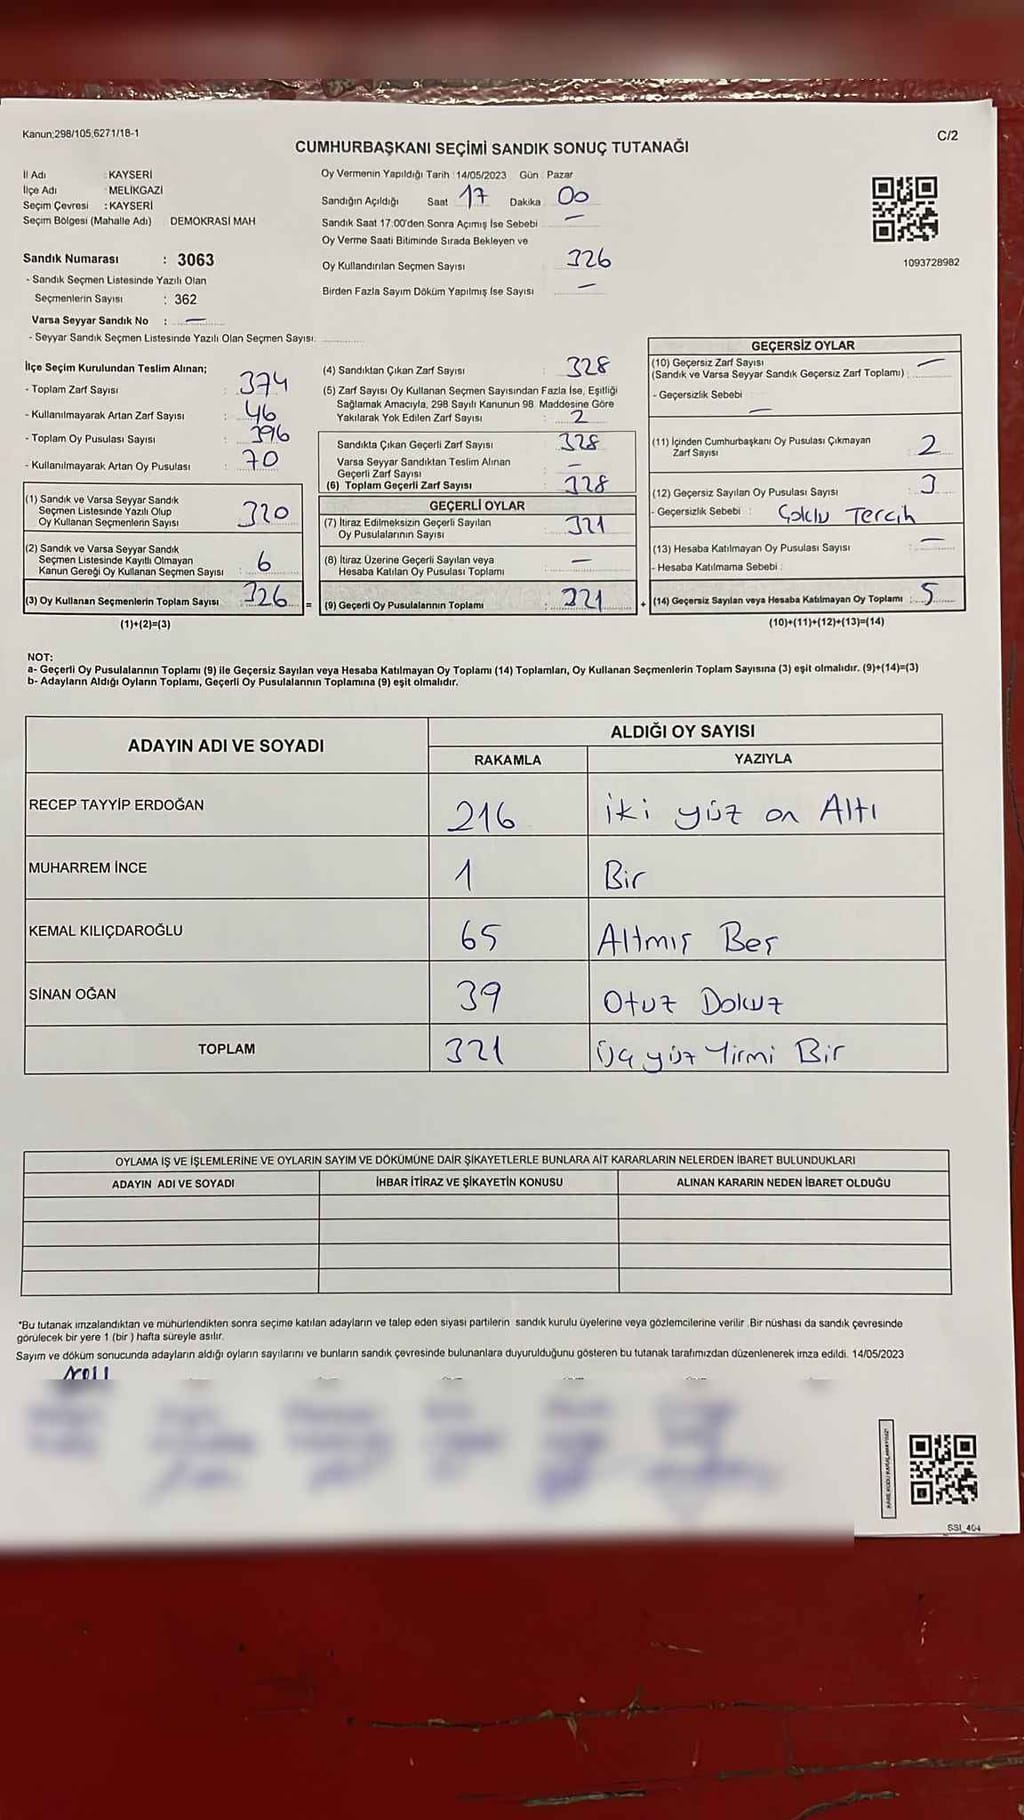 Kanun:298/105,6271/18-1
C/2
CUMHURBAŞKANI SEÇİMİ SANDIK SONUÇ TUTANAĞI
İl Adı : KAYSERİ
İlçe Adı : MELİKGAZİ
Seçim Çevresi : KAYSERİ
Seçim Bölgesi (Mahalle Adı) DEMOKRASİ MAH
Sandık Numarası : 3063
- Sandık Seçmen Listesinde Yazılı Olan
Seçmenlerin Sayısı : 362
Varsa Seyyar Sandık No : —
- Seyyar Sandık Seçmen Listesinde Yazılı Olan Seçmen Sayısı:
Oy Vermenin Yapıldığı Tarih : 14/05/2023 Gün : Pazar
Sandığın Açıldığı Saat 17 Dakika 00
Sandık Saat 17:00'den Sonra Açımış İse Sebebi —
Oy Verme Saati Bitiminde Sırada Bekleyen ve
Oy Kullandırılan Seçmen Sayısı 326
Birden Fazla Sayım Döküm Yapılmış İse Sayısı —
1093728982
İlçe Seçim Kurulundan Teslim Alınan;
- Toplam Zarf Sayısı : 374
- Kullanılmayarak Artan Zarf Sayısı : 46
- Toplam Oy Pusulası Sayısı : 396
- Kullanılmayarak Artan Oy Pusulası : 70
(1) Sandık ve Varsa Seyyar Sandık
Seçmen Listesinde Yazılı Olup
Oy Kullanan Seçmenlerin Sayısı : 320
(2) Sandık ve Varsa Seyyar Sandık
Seçmen Listesinde Kayıtlı Olmayan
Kanun Gereği Oy Kullanan Seçmen Sayısı : 6
(3) Oy Kullanan Seçmenlerin Toplam Sayısı : 326 =
(1)+(2)=(3)
(4) Sandıktan Çıkan Zarf Sayısı : 328
(5) Zarf Sayısı Oy Kullanan Seçmen Sayısından Fazla İse, Eşitliği
Sağlamak Amacıyla, 298 Sayılı Kanunun 98. Maddesine Göre
Yakılarak Yok Edilen Zarf Sayısı : 2
Sandıkta Çıkan Geçerli Zarf Sayısı : 328
Varsa Seyyar Sandıktan Teslim Alınan
Geçerli Zarf Sayısı : —
(6) Toplam Geçerli Zarf Sayısı : 328
GEÇERLİ OYLAR
(7) İtiraz Edilmeksizin Geçerli Sayılan
Oy Pusulalarının Sayısı : 321
(8) İtiraz Üzerine Geçerli Sayılan veya
Hesaba Katılan Oy Pusulası Toplamı : —
(9) Geçerli Oy Pusulalarının Toplamı : 321 +
GEÇERSİZ OYLAR
(10) Geçersiz Zarf Sayısı
(Sandık ve Varsa Seyyar Sandık Geçersiz Zarf Toplamı) : —
- Geçersizlik Sebebi :
—
(11) İçinden Cumhurbaşkanı Oy Pusulası Çıkmayan
Zarf Sayısı : 2
(12) Geçersiz Sayılan Oy Pusulası Sayısı : 3
- Geçersizlik Sebebi : Çoklu Tercih
(13) Hesaba Katılmayan Oy Pusulası Sayısı : —
- Hesaba Katılmama Sebebi :
(14) Geçersiz Sayılan veya Hesaba Katılmayan Oy Toplamı : 5
(10)+(11)+(12)+(13)=(14)
NOT:
a- Geçerli Oy Pusulalarının Toplamı (9) ile Geçersiz Sayılan veya Hesaba Katılmayan Oy Toplamı (14) Toplamları, Oy Kullanan Seçmenlerin Toplam Sayısına (3) eşit olmalıdır. (9)+(14)=(3)
b- Adayların Aldığı Oyların Toplamı, Geçerli Oy Pusulalarının Toplamına (9) eşit olmalıdır.
ADAYIN ADI VE SOYADI
ALDIĞI OY SAYISI
RAKAMLA YAZIYLA
RECEP TAYYİP ERDOĞAN 216 İki yüz on Altı
MUHARREM İNCE 1 Bir
KEMAL KILIÇDAROĞLU 65 Altmış Beş
SİNAN OĞAN 39 Otuz Dokuz
TOPLAM 321 Üç yüz Yirmi Bir
OYLAMA İŞ VE İŞLEMLERİNE VE OYLARIN SAYIM VE DÖKÜMÜNE DAİR ŞİKAYETLERLE BUNLARA AİT KARARLARIN NELERDEN İBARET BULUNDUKLARI
ADAYIN ADI VE SOYADI İHBAR İTİRAZ VE ŞİKAYETİN KONUSU ALINAN KARARIN NEDEN İBARET OLDUĞU
*Bu tutanak imzalandıktan ve mühürlendikten sonra seçime katılan adayların ve talep eden siyasi partilerin sandık kurulu üyelerine veya gözlemcilerine verilir .Bir nüshası da sandık çevresinde
görülecek bir yere 1 (bir ) hafta süreyle asılır.
Sayım ve döküm sonucunda adayların aldığı oyların sayılarını ve bunların sandık çevresinde bulunanlara duyurulduğunu gösteren bu tutanak tarafımızdan düzenlenerek imza edildi. 14/05/2023
SSI_404